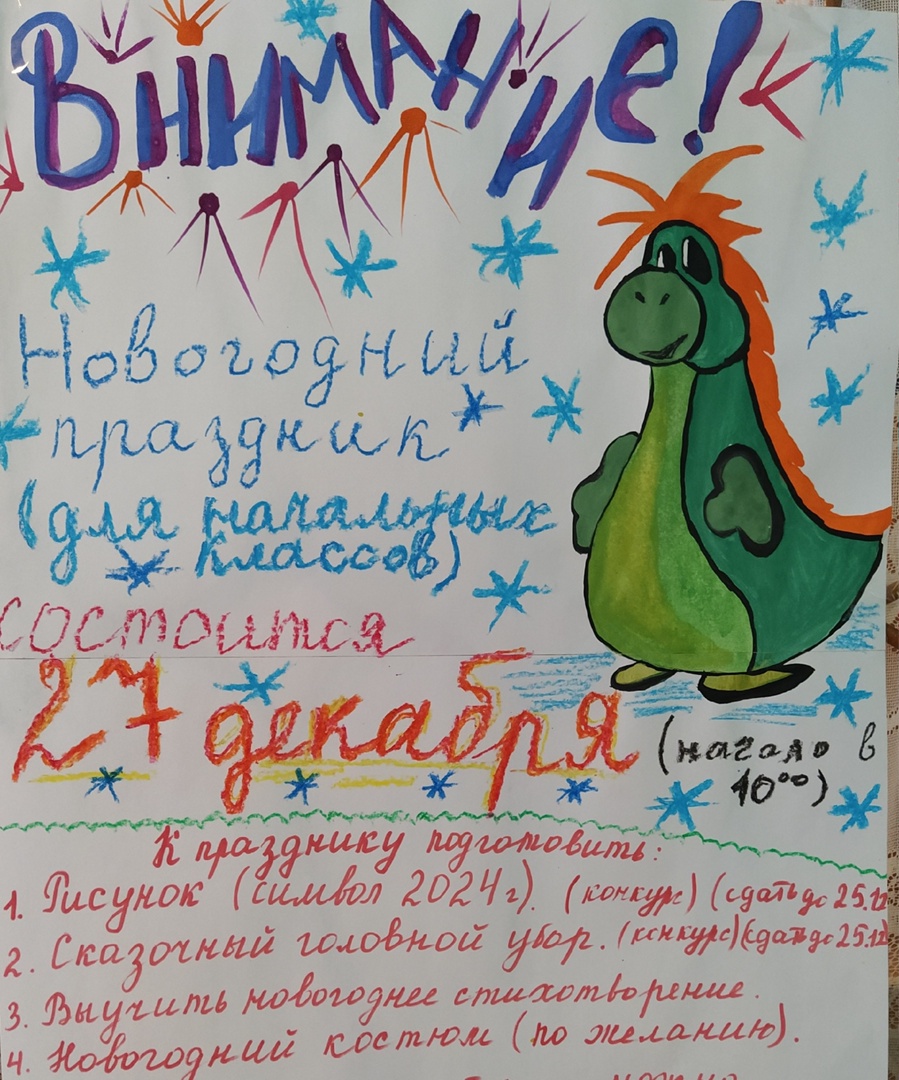 Внимание!
Новогодний
праздник
(для начальных
классов)
состоится
27 декабря
(начало в
10⁰⁰)
К празднику подготовить:
1. Рисунок (символ 2024 г). (конкурс) (сдать до 25.12
2. Сказочный головной убор. (конкурс) (сдать до 25.12)
3. Выучить новогоднее стихотворение.
4. Новогодний костюм (по желанию).